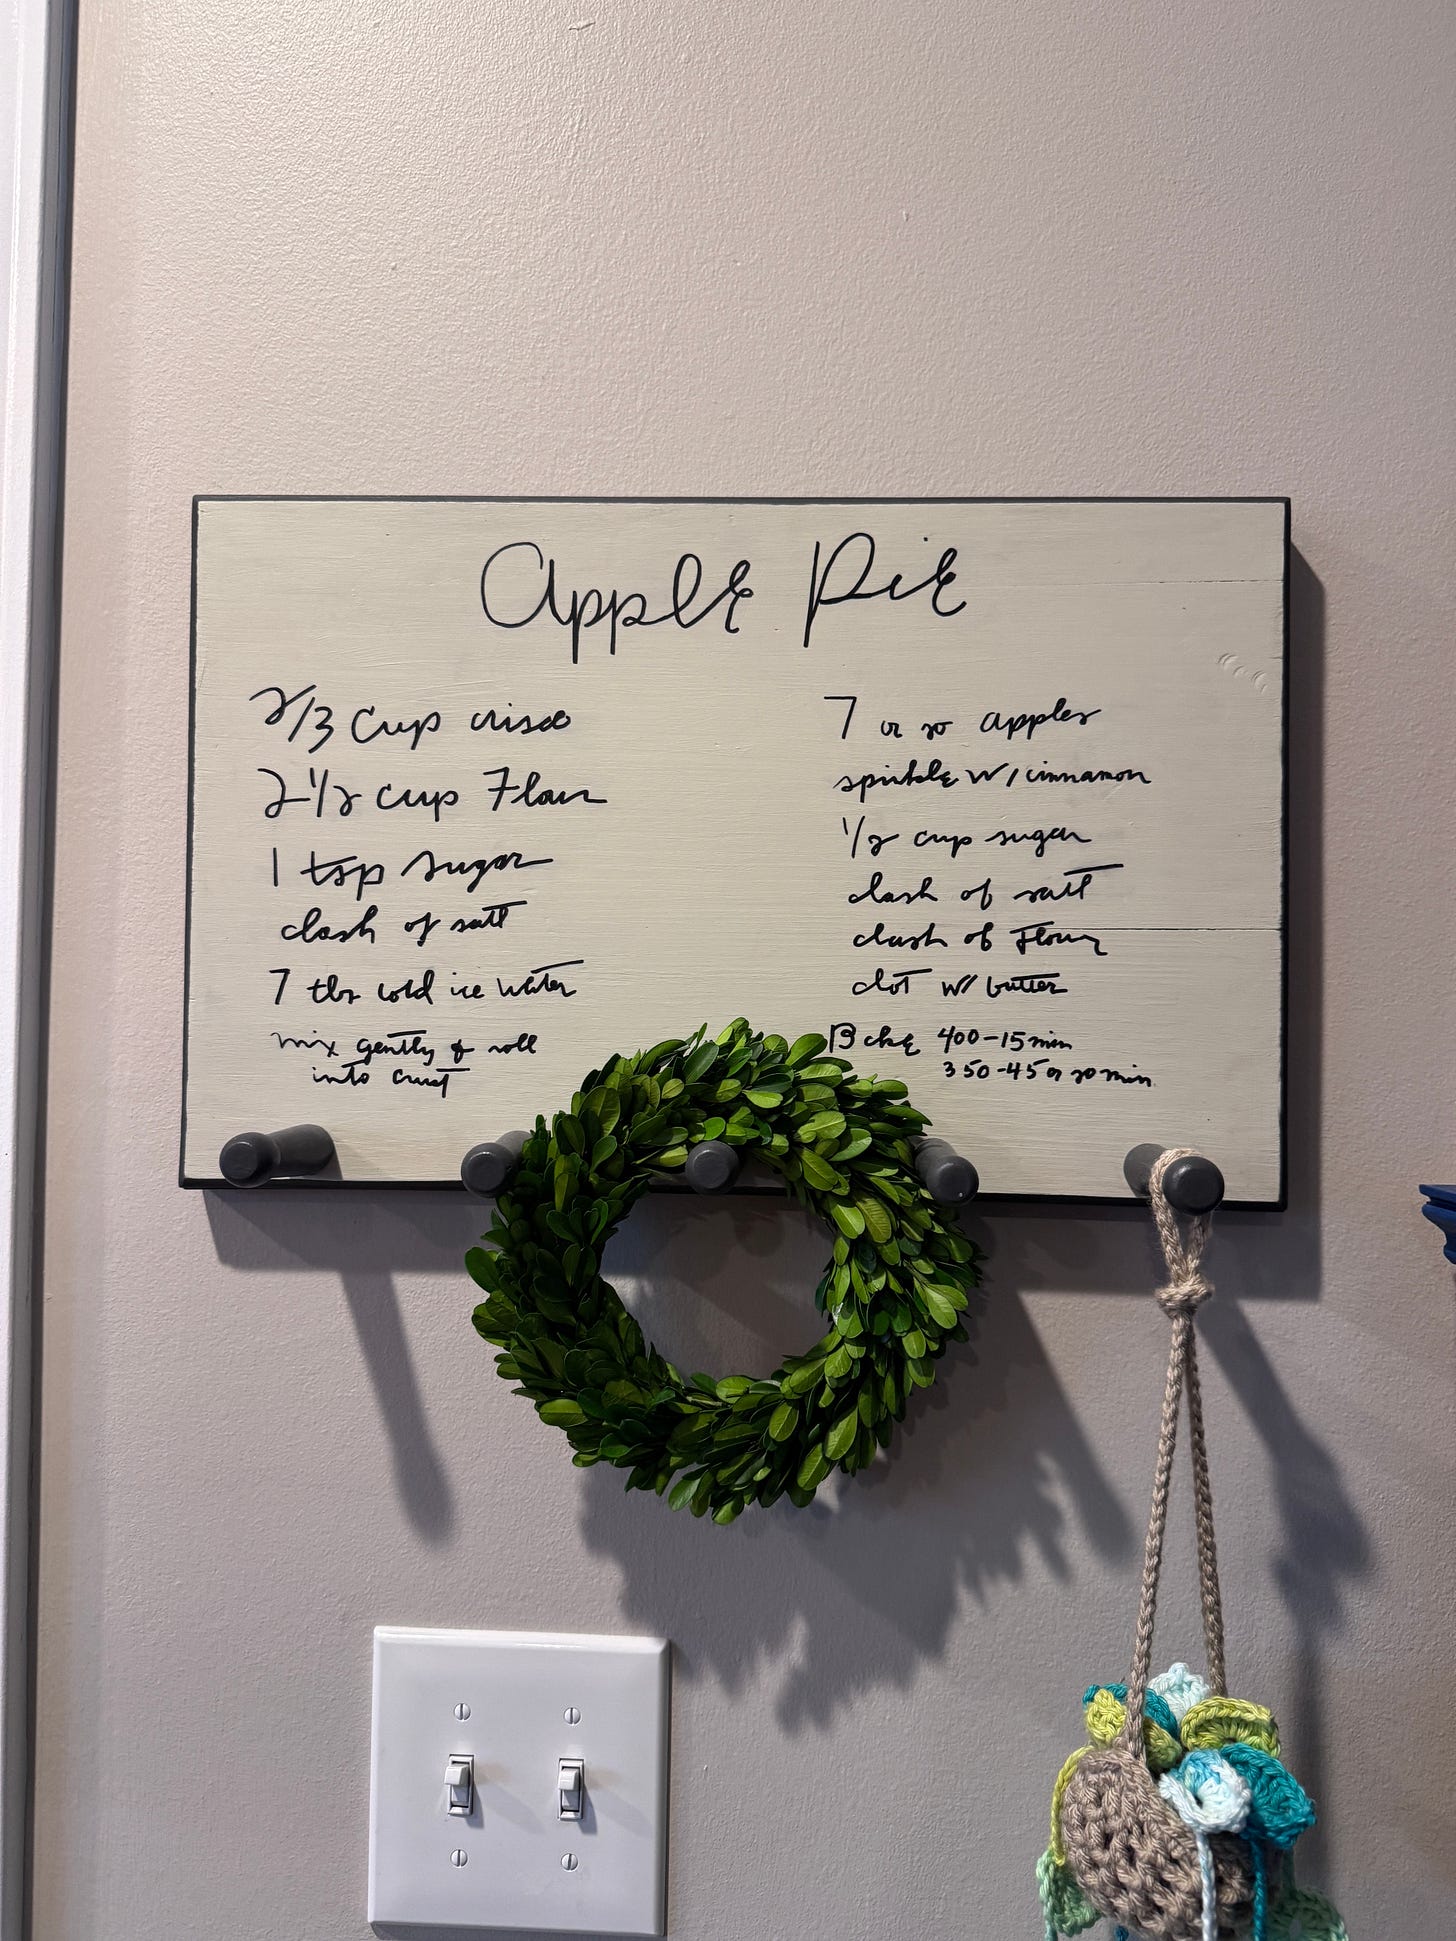 Apple Pie
2/3 cup crisco
2 1/2 cup Flour
1 tsp sugar
dash of salt
7 tbs cold ice water
mix gently & roll
into crust
7 or so apples
sprinkle w/ cinnamon
1/2 cup sugar
dash of salt
dash of flour
dot w/ butter
Bake 400-15 min
350-45 or so min